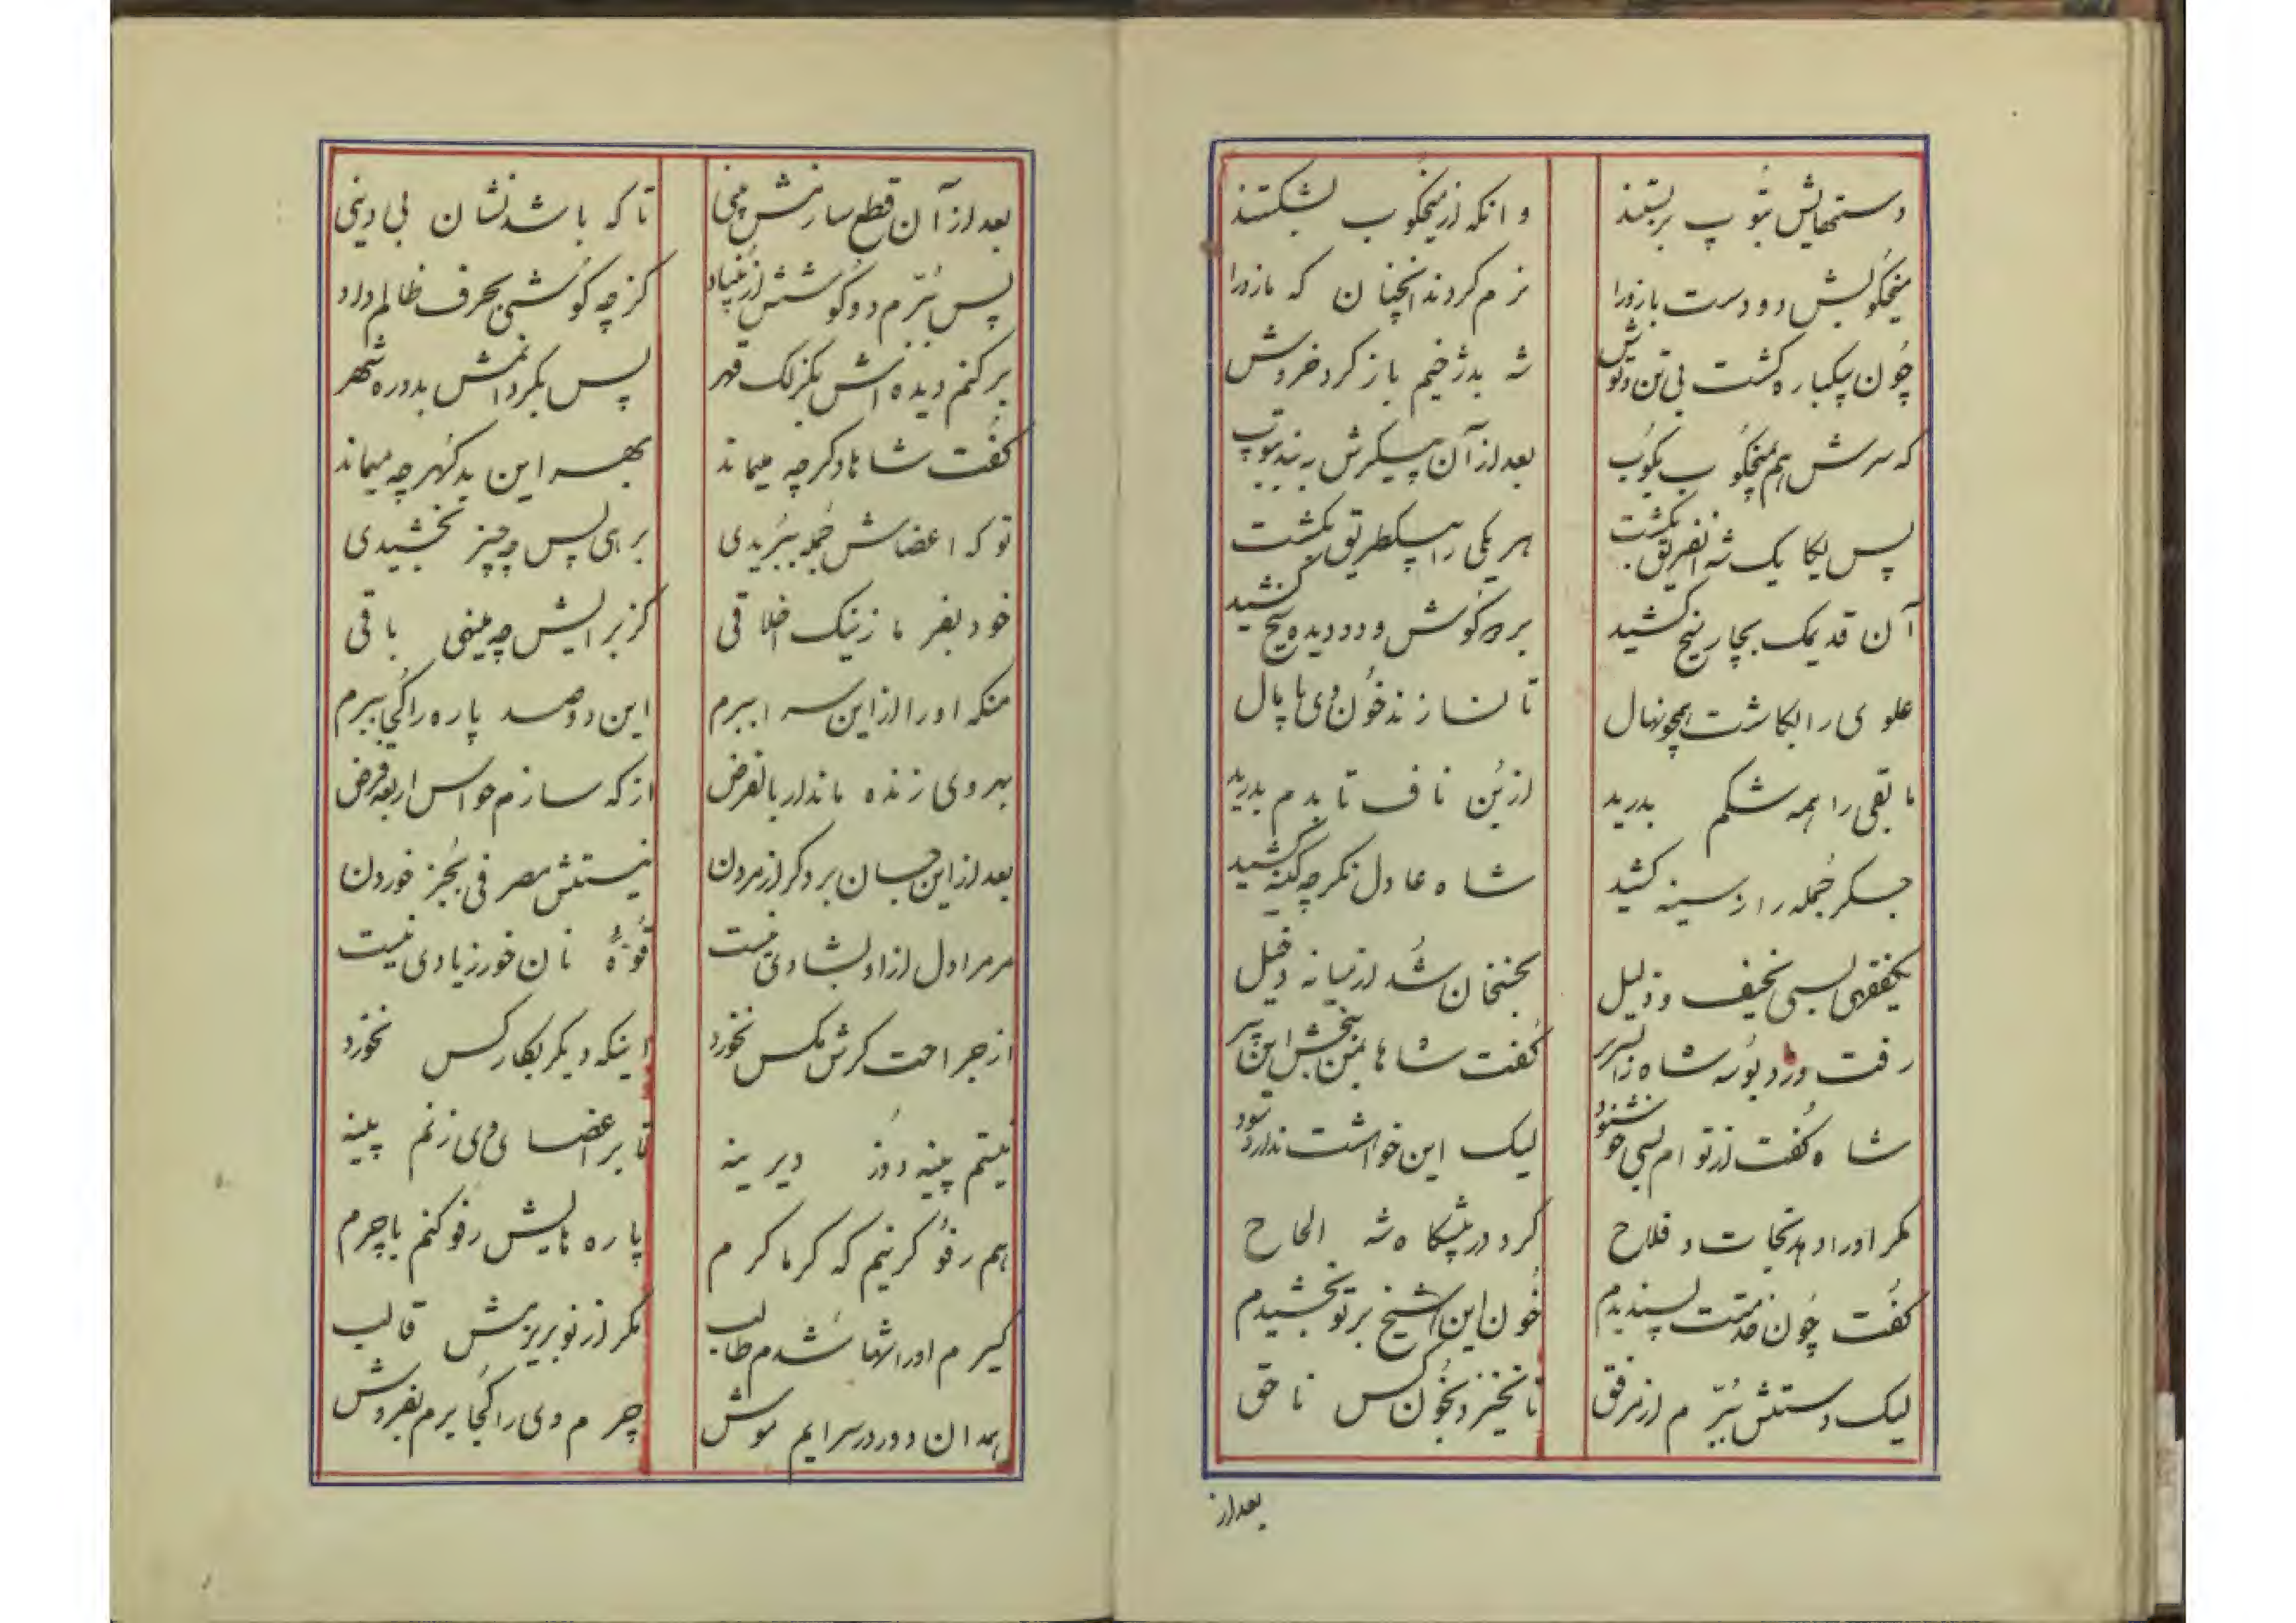 دستهایش بتوپ بربستند
وانکه از میخکوب بشکستند
میخکوبش دو دست بازو را
نرم کردند انچنان که بازو را
چون بیکباره کشت بی تن و توش
شه بدژخیم باز کرد خروش
که سرش هم بمیخکوب بکوب
بعد از آن پیکرش به بند بتوپ
پس یکایک شه انفریق بکشت
هر یکی را بیکطریق بکشت
آن قد یک بچار میخ کشید
بر دو کوش و دو دیده میخ کشید
علوی را بکاشت همچو نهال
تا نسازند خون وی پامال
مابقی را همه شکم بدرید
از بن ناف تا بدم بدرید
جسکر جمله را ز سینه کشید
شاه عادل نکر چه کینه کشید
یکفقیهی بسی نحیف و ذلیل
بخنخان شد از میانه دخیل
رفت و زد بوسه شاه را بسریر
کفت شاها بمن ببخش این پیر
شاه کفت از تو ام بسی خوشنود
لیک این خواهشت ندارد سود
مکر او را دهد نجات و فلاح
کرد در پیشکاه شه الحاح
کفت چون خدمتت پسندیدم
خون این شیخ بر تو بخشیدم
لیک دستش ببرم از مرفق
تا نخیزد بخون کس ناحق
بعد از
بعد از آن قطع سازمش بینی
تا که باشد نشان بی دینی
پس ببرم دو کوشش از بنیاد
کز چه کوشی بحرف ظالم داد
بر کنم دیده اش بکزلک قهر
پس بکردانمش بدوره شهر
کفت شاها دکر چه میماند
بهر این بد کهر چه میماند
تو که اعضاش جمله ببریدی
برای پس چه چیز بخشیدی
خود بفرما ز نیک اخلاقی
کز برایش چه بینمی باقی
منکه او را از این سرا ببرم
این دوصد پاره را کجا ببرم
ببر وی زنده ماند ار بالفرض
از که سازم حواس اربعه قرض
بعد از این جسان برد کر از مردن
نیستش مصرفی بجز خوردن
مر مرا دل از او بشادی نیست
قوه نان خور زیادی نیست
از جراحت کرش مکس نخورد
اینکه دیکر بکار کس نخورد
نیستم پینه دوز دیرینه
تا بر اعضای وی زنم پینه
هم رفو کر نیم که کرماکرم
پاره هایش رفو کنم با چرم
کیرم او را بها شدم طالب
مکر از نو بریزمش قالب
همدان دور در سرایم موش
چرم وی را کجا برم بفروش